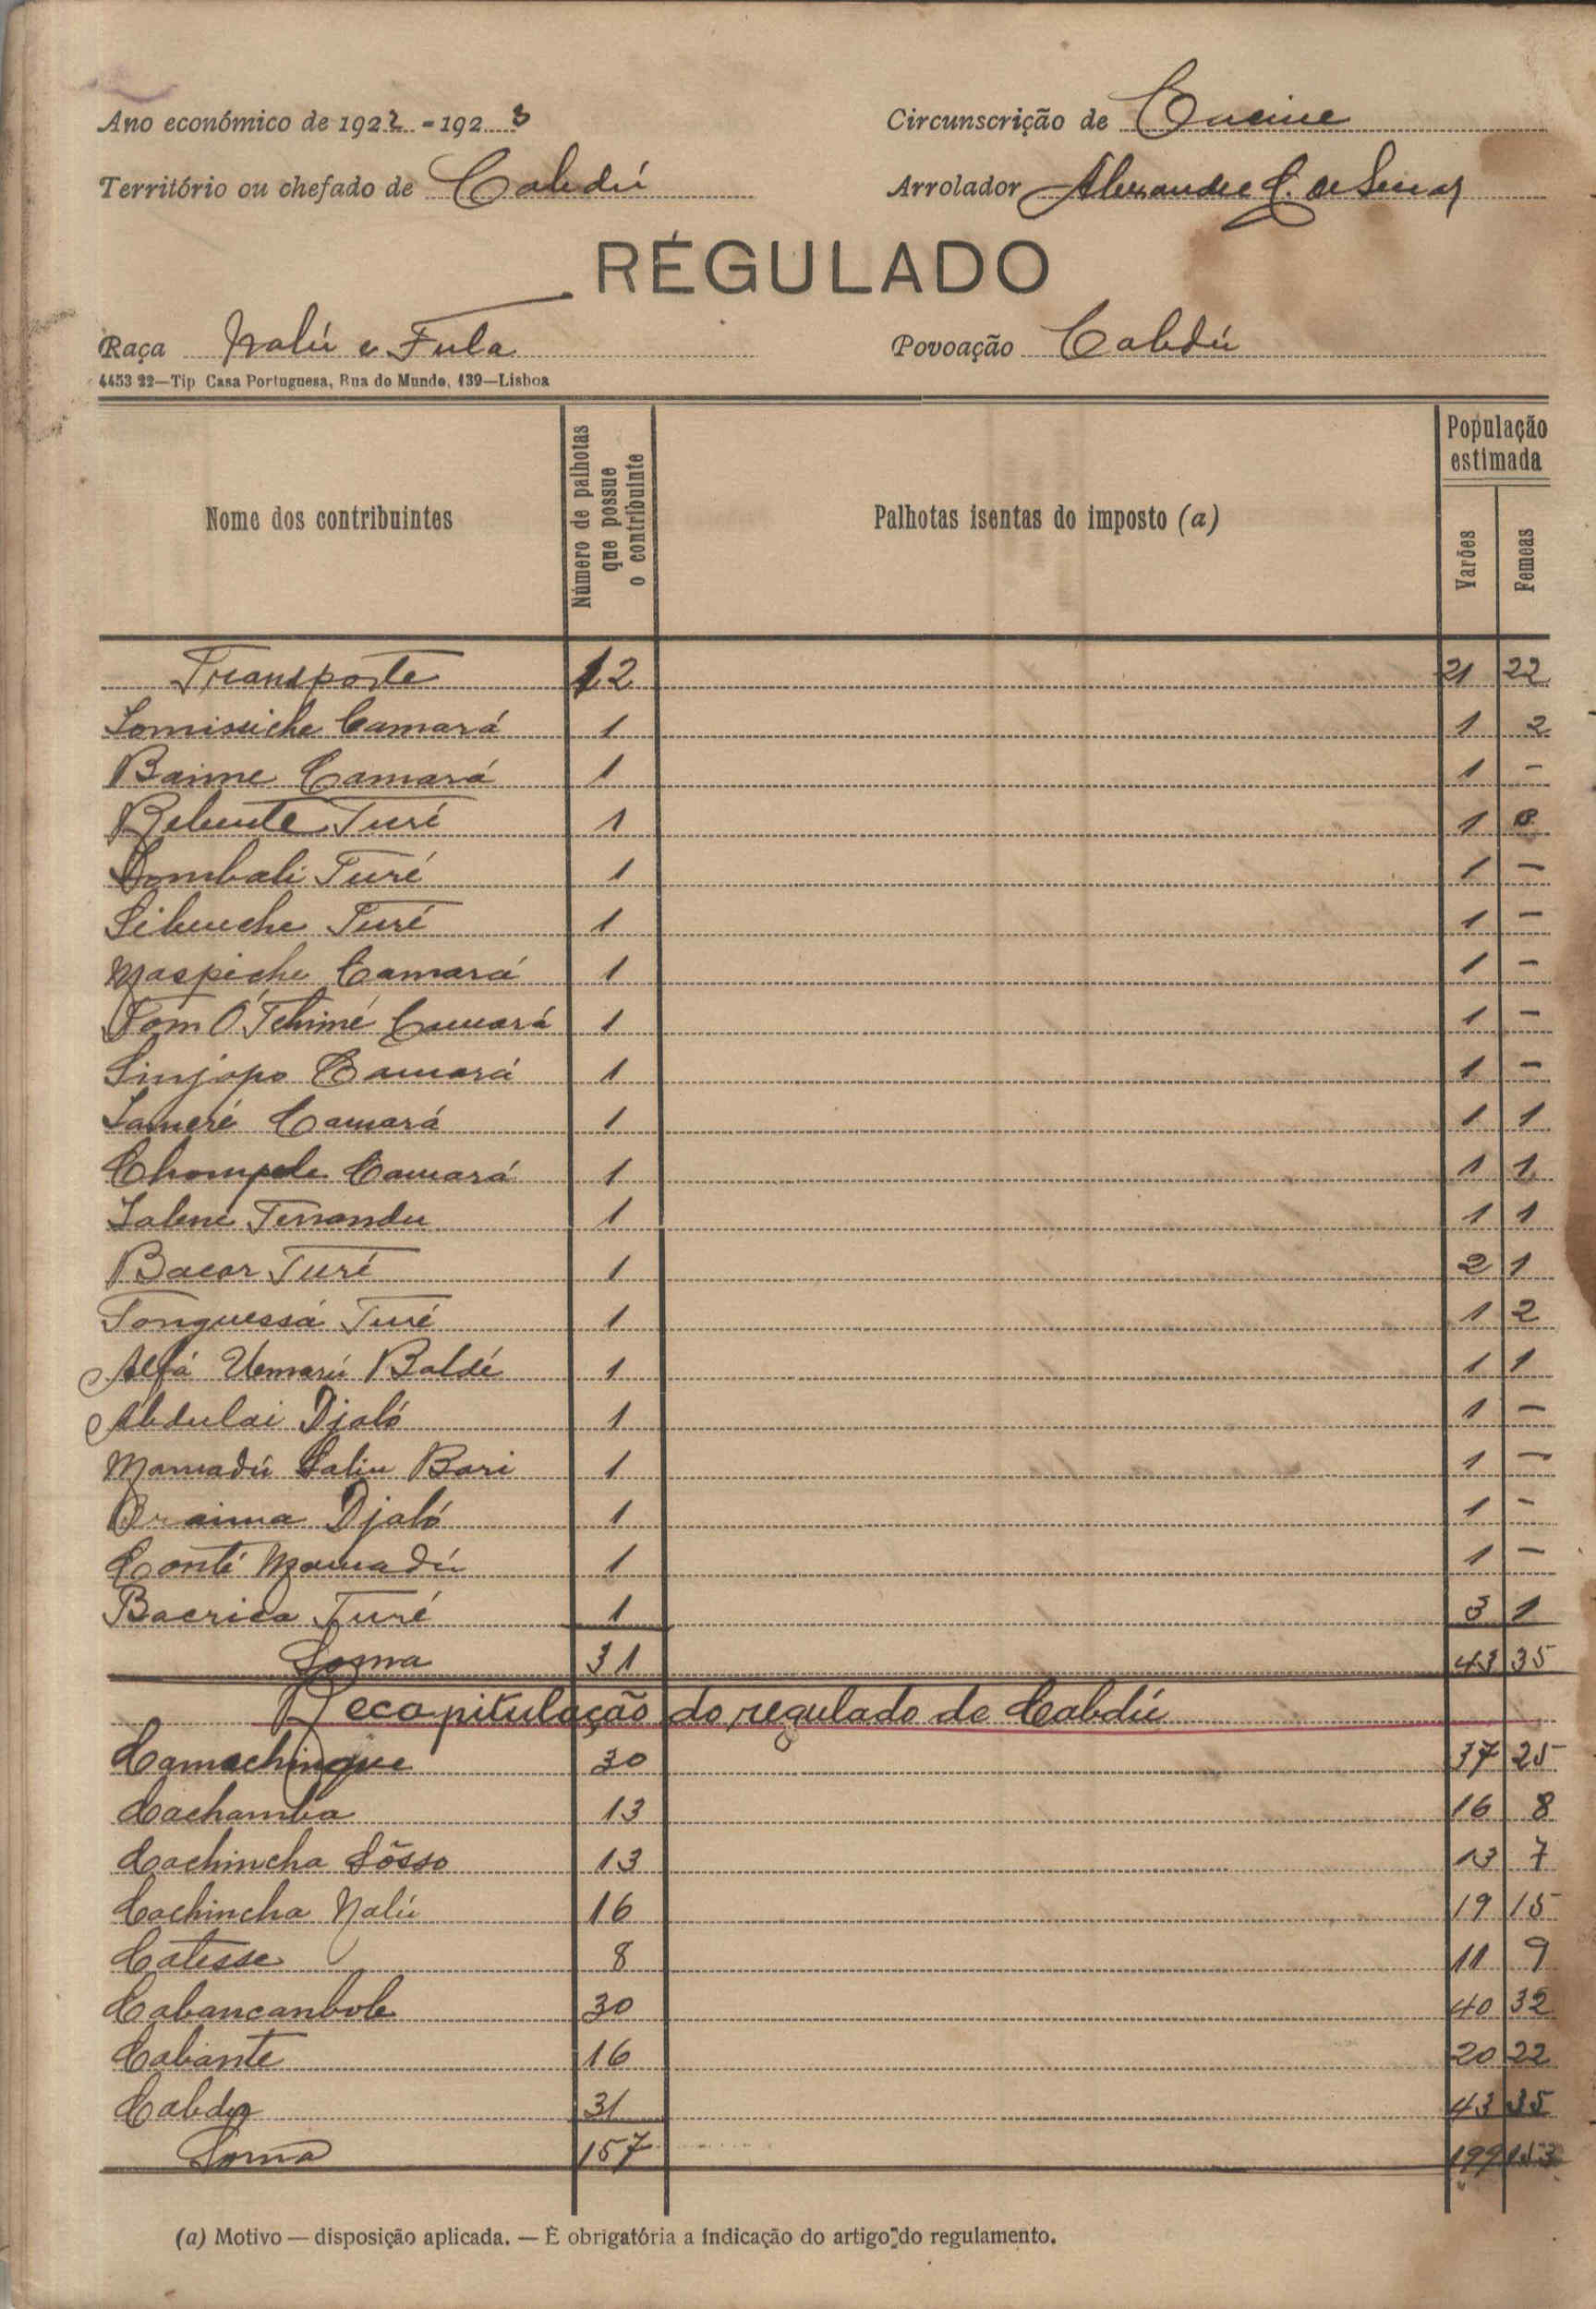 Ano económico de 1922 - 1923
Circunscrição de Cacine
Território ou chefado de Cabdú
Arrolador Alexandre C. de Senas
RÉGULADO
Raça Nalú e Fula
Povoação Cabdú
4453 22—Tip Casa Portuguesa, Rua do Mundo, 139—Lisboa
Nome dos contribuintes
Número de palhotas que possue o contribuinte
Palhotas isentas do imposto (a)
População estimada
Varões
Femeas
Transporte 12 21 22
Camará 1 1 2
Baime Camará 1 1 -
Turé 1 1
Dombali Turé 1 1 —
Turé 1 1 —
Maspiche Camará 1 1 -
Tom Ó Tchimé Camará 1 1 -
Sinjopo Camará 1 1 -
Lameré Camará 1 1 1
Chompele Camará 1 1 1
1 1 1
Bacar Turé 1 2 1
Tonguessá Turé 1 1 2
Alfá Umarú Baldé 1 1 1
Abdulai Djaló 1 1 —
Mamadú Saliu Bari 1 1 —
Braima Djaló 1 1 -
Conté Mamadú 1 1 —
Turé 1 3 1
Soma 31 43 35
Recapitulação do regulado de Cabdú
Camachingue 30 37 25
Cachamba 13 16 8
Cachincha Sôsso 13 13 7
Cachincha Nalú 16 19 15
Catesse 8 11 9
Cabancanbole 30 40 32
Cabante 16 20 22
Cabdú 31 43 35
Soma 157 199 153
(a) Motivo — disposição aplicada. — É obrigatória a indicação do artigo do regulamento.